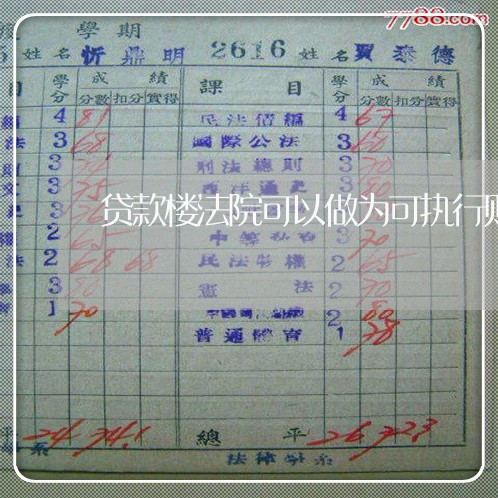 7788.com
學期
5 姓名 忻鼎明 2616 姓名 賈泰德
目 學分 成績 課目 學分 成績
分數 扣分 實得 分數 扣分 實得
4 81 民法債編 4 67
法 3 68 國際公法 3 60
3 刑法總則 3 70
3 75 西洋通史 3 80
贷款楼法院可以做为可执行财
2 65 3 70
法 2 68 68 民法物權 2 65
3 80 憲法 2 70
1 70 2 80
普通體育 1 78
平 24 74.1 總平 26 72.3
系 法律學系